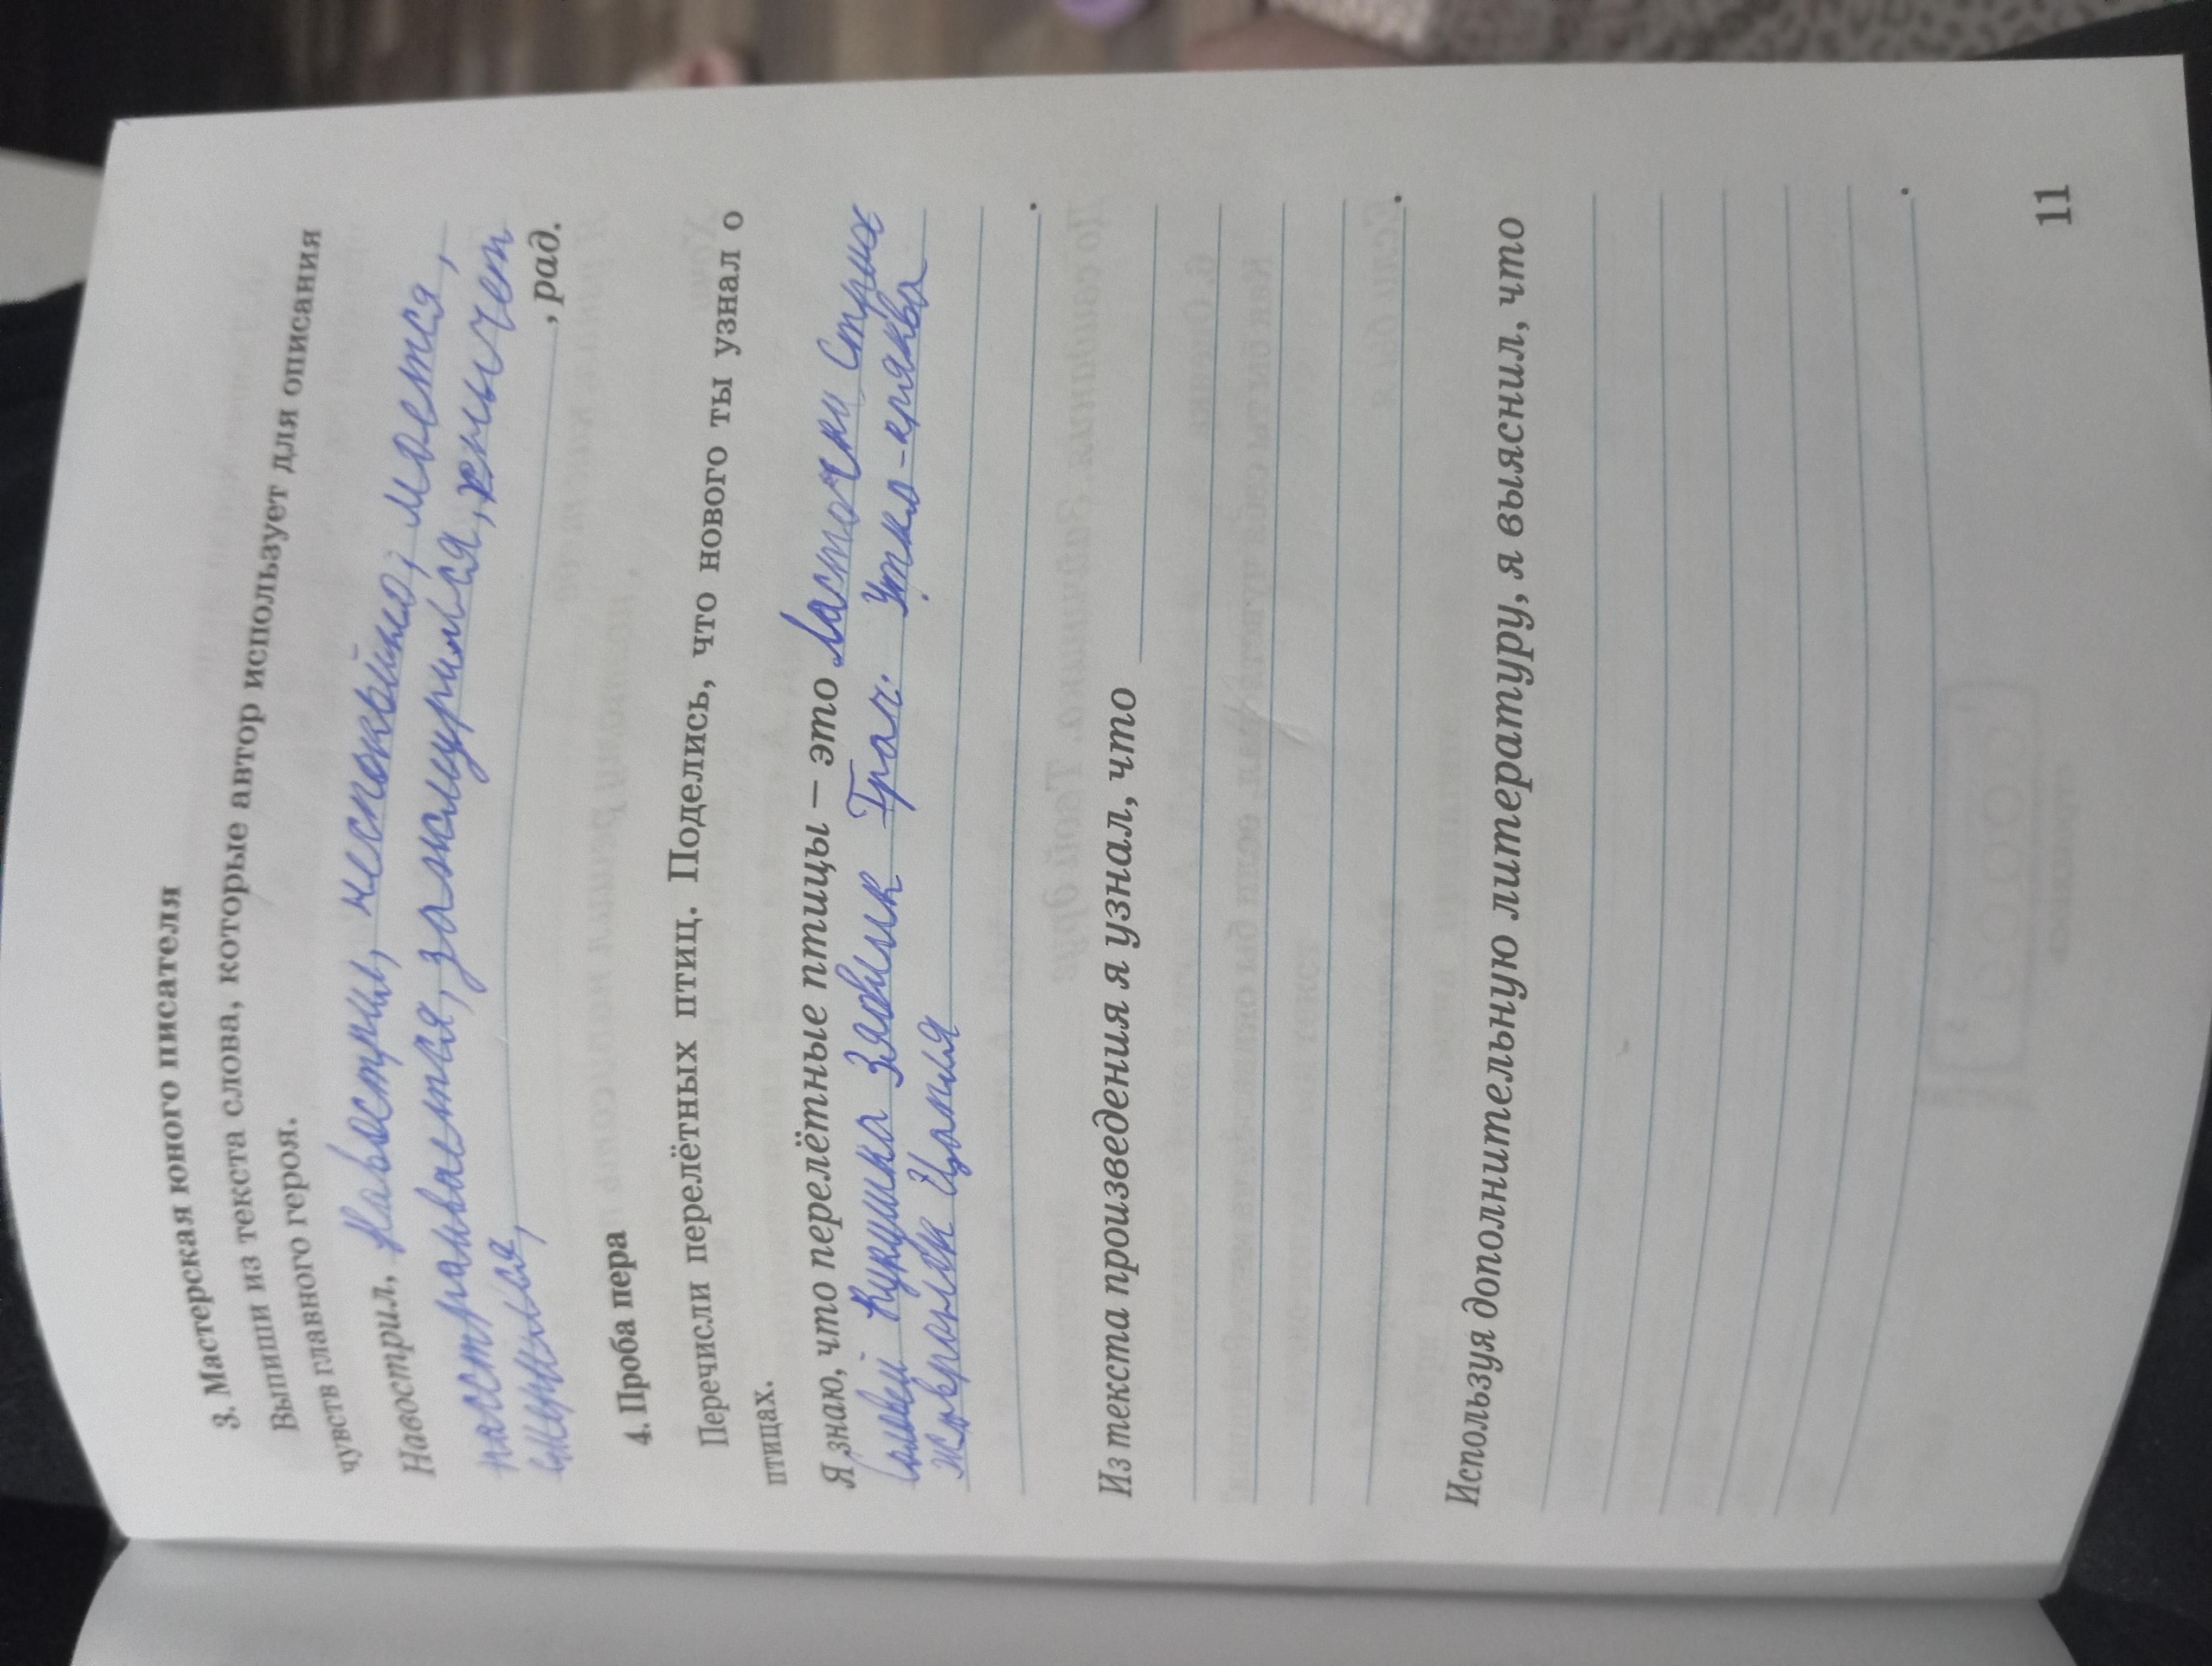 3. Мастерская юного писателя
Выпиши из текста слова, которые автор использует для описания
чувств главного героя.
Навострил, Навострил, неспокойно, мается,
насстраивается, зажмурился, хнычет
, рад.
4. Проба пера
Перечисли перелётных птиц. Поделись, что нового ты узнал о
птицах.
Я знаю, что перелётные птицы – это Ласточки Стриж
Соловей Кукушка Зяблик Грач. Утка-кряква
Жавронок Цапля
.
Из текста произведения я узнал, что
.
Используя дополнительную литературу, я выяснил, что
.
11